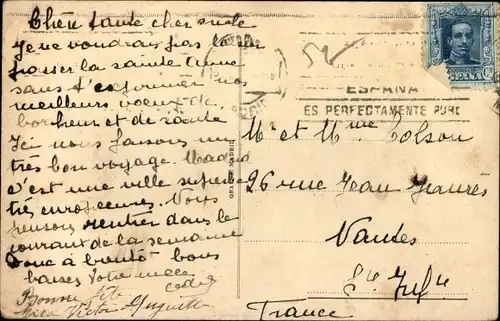 Chère tante cher oncle
Je ne voudrais pas laisser
passer la sainte Anne
sans t'exprimer nos
meilleurs voeux de
bonheur et de santé
Ici nous faisons un
très bon voyage. Madrid
c'est une ville superbe
très européenne. Nous
pensons rentrer dans le
courant de la semaine
Donc à bientôt bons
baisers votre nièce
Bonne fête
Victor Huguette
ESPAÑA
ES PERFECTAMENTE PURO
ESPAÑA
Mr et Mme Polson
26 rue Jean Jaurès
Nantes
Lre Infre
France
MADRID